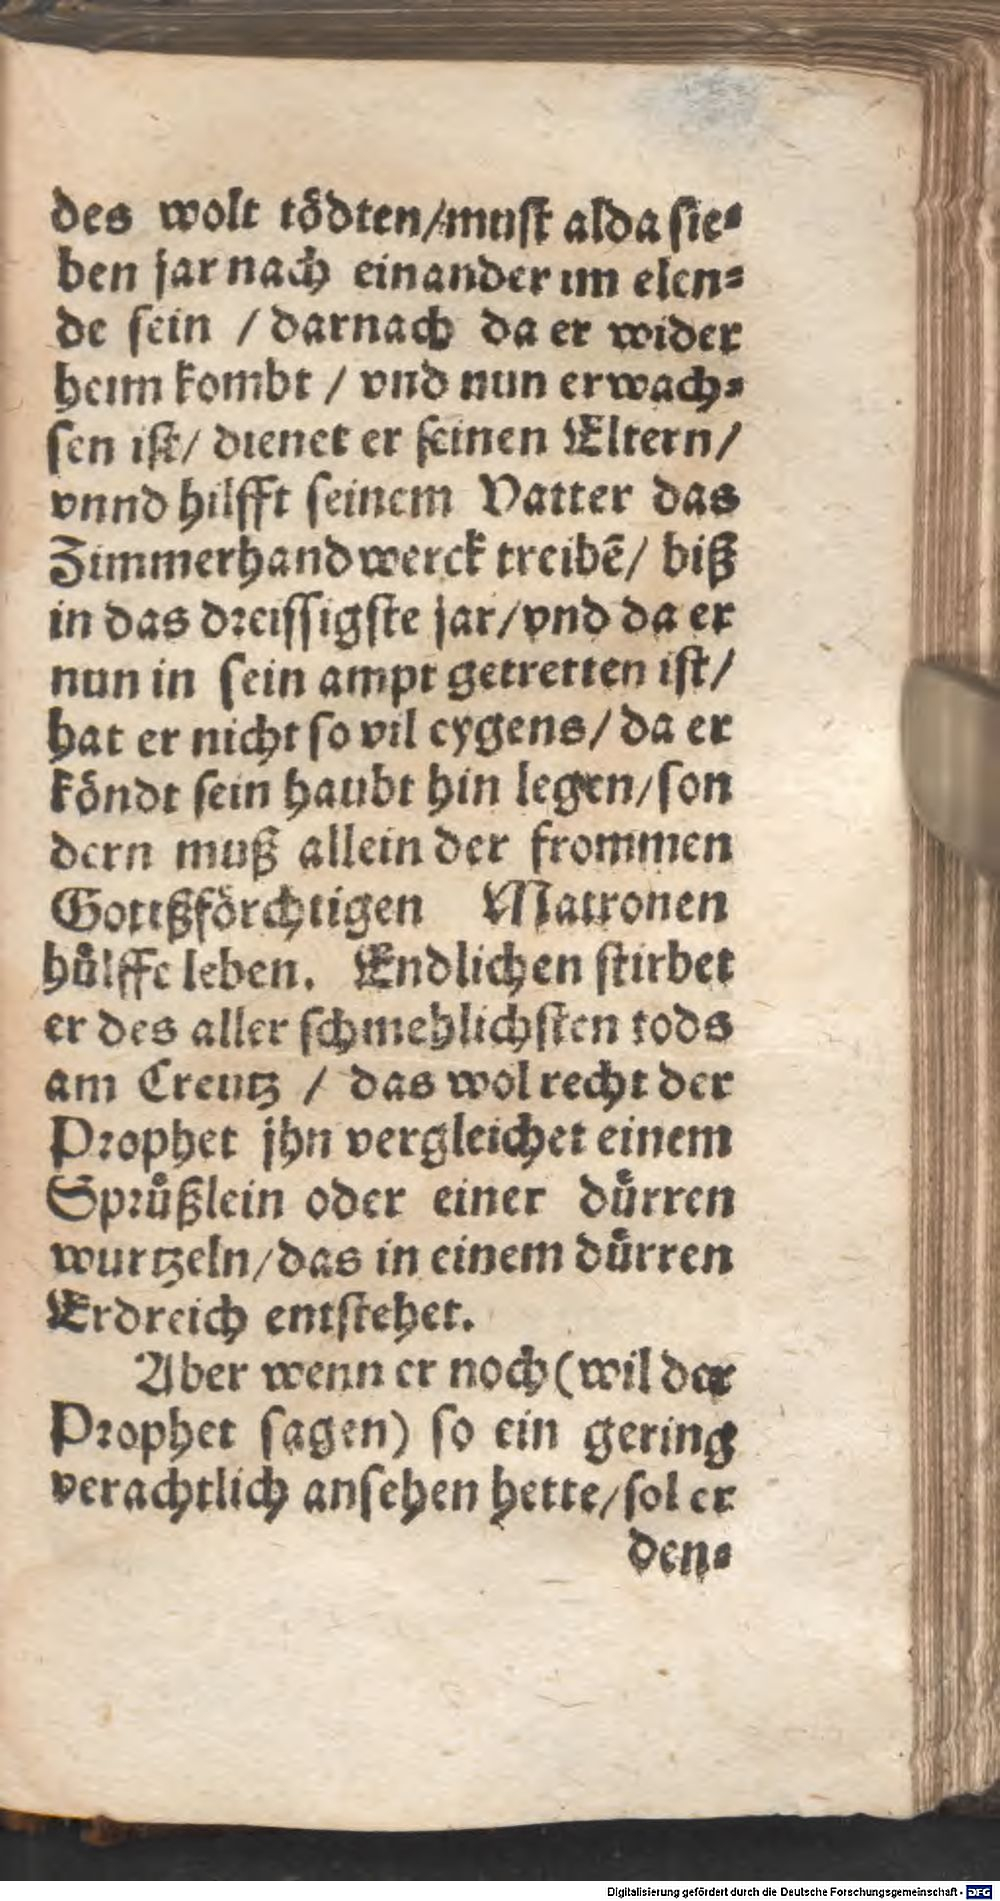 des wolt toͤdten/must alda sie⸗
ben jar nach einander im elen⸗
de sein / darnach da er wider
heim kombt / vnd nun erwach⸗
sen ist/ dienet er seinen Eltern/
vnnd hilfft seinem Vatter das
Zimmerhandwerck treibẽ/ biß
in das dreissigste jar/vnd da er
nun in sein ampt getretten ist/
hat er nicht so vil eygens/da er
koͤndt sein haubt hin legen/son
dern muß allein der frommen
Gottßfoͤrchtigen Matronen
huͤlffe leben. Endlichen stirbet
er des aller schmehlichsten tods
am Creutz / das wol recht der
Prophet jhn vergleichet einem
Spruͤßlein oder einer duͤrren
wurtzeln/das in einem duͤrren
Erdreich entstehet.
Aber wenn er noch (wil der
Prophet sagen) so ein gering
verachtlich ansehen hette/sol er
den⸗
Digitalisierung gefördert durch die Deutsche Forschungsgemeinschaft - DFG